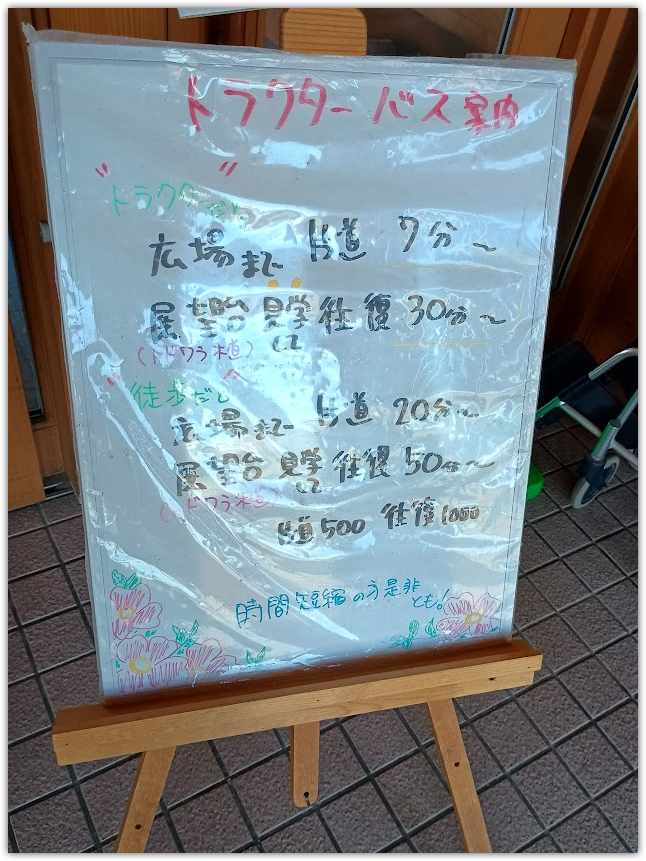 トラクター バス 案内
"トラクターだと"
広場まで 片道 7分〜
展望台 見学して 往復 30分〜
(トドワラ木道)
"徒歩だと"
広場まで 片道 20分〜
展望台 見学して 往復 50分〜
(トドワラ木道)
片道 500 往復 1000
時間短縮の方是非とも!